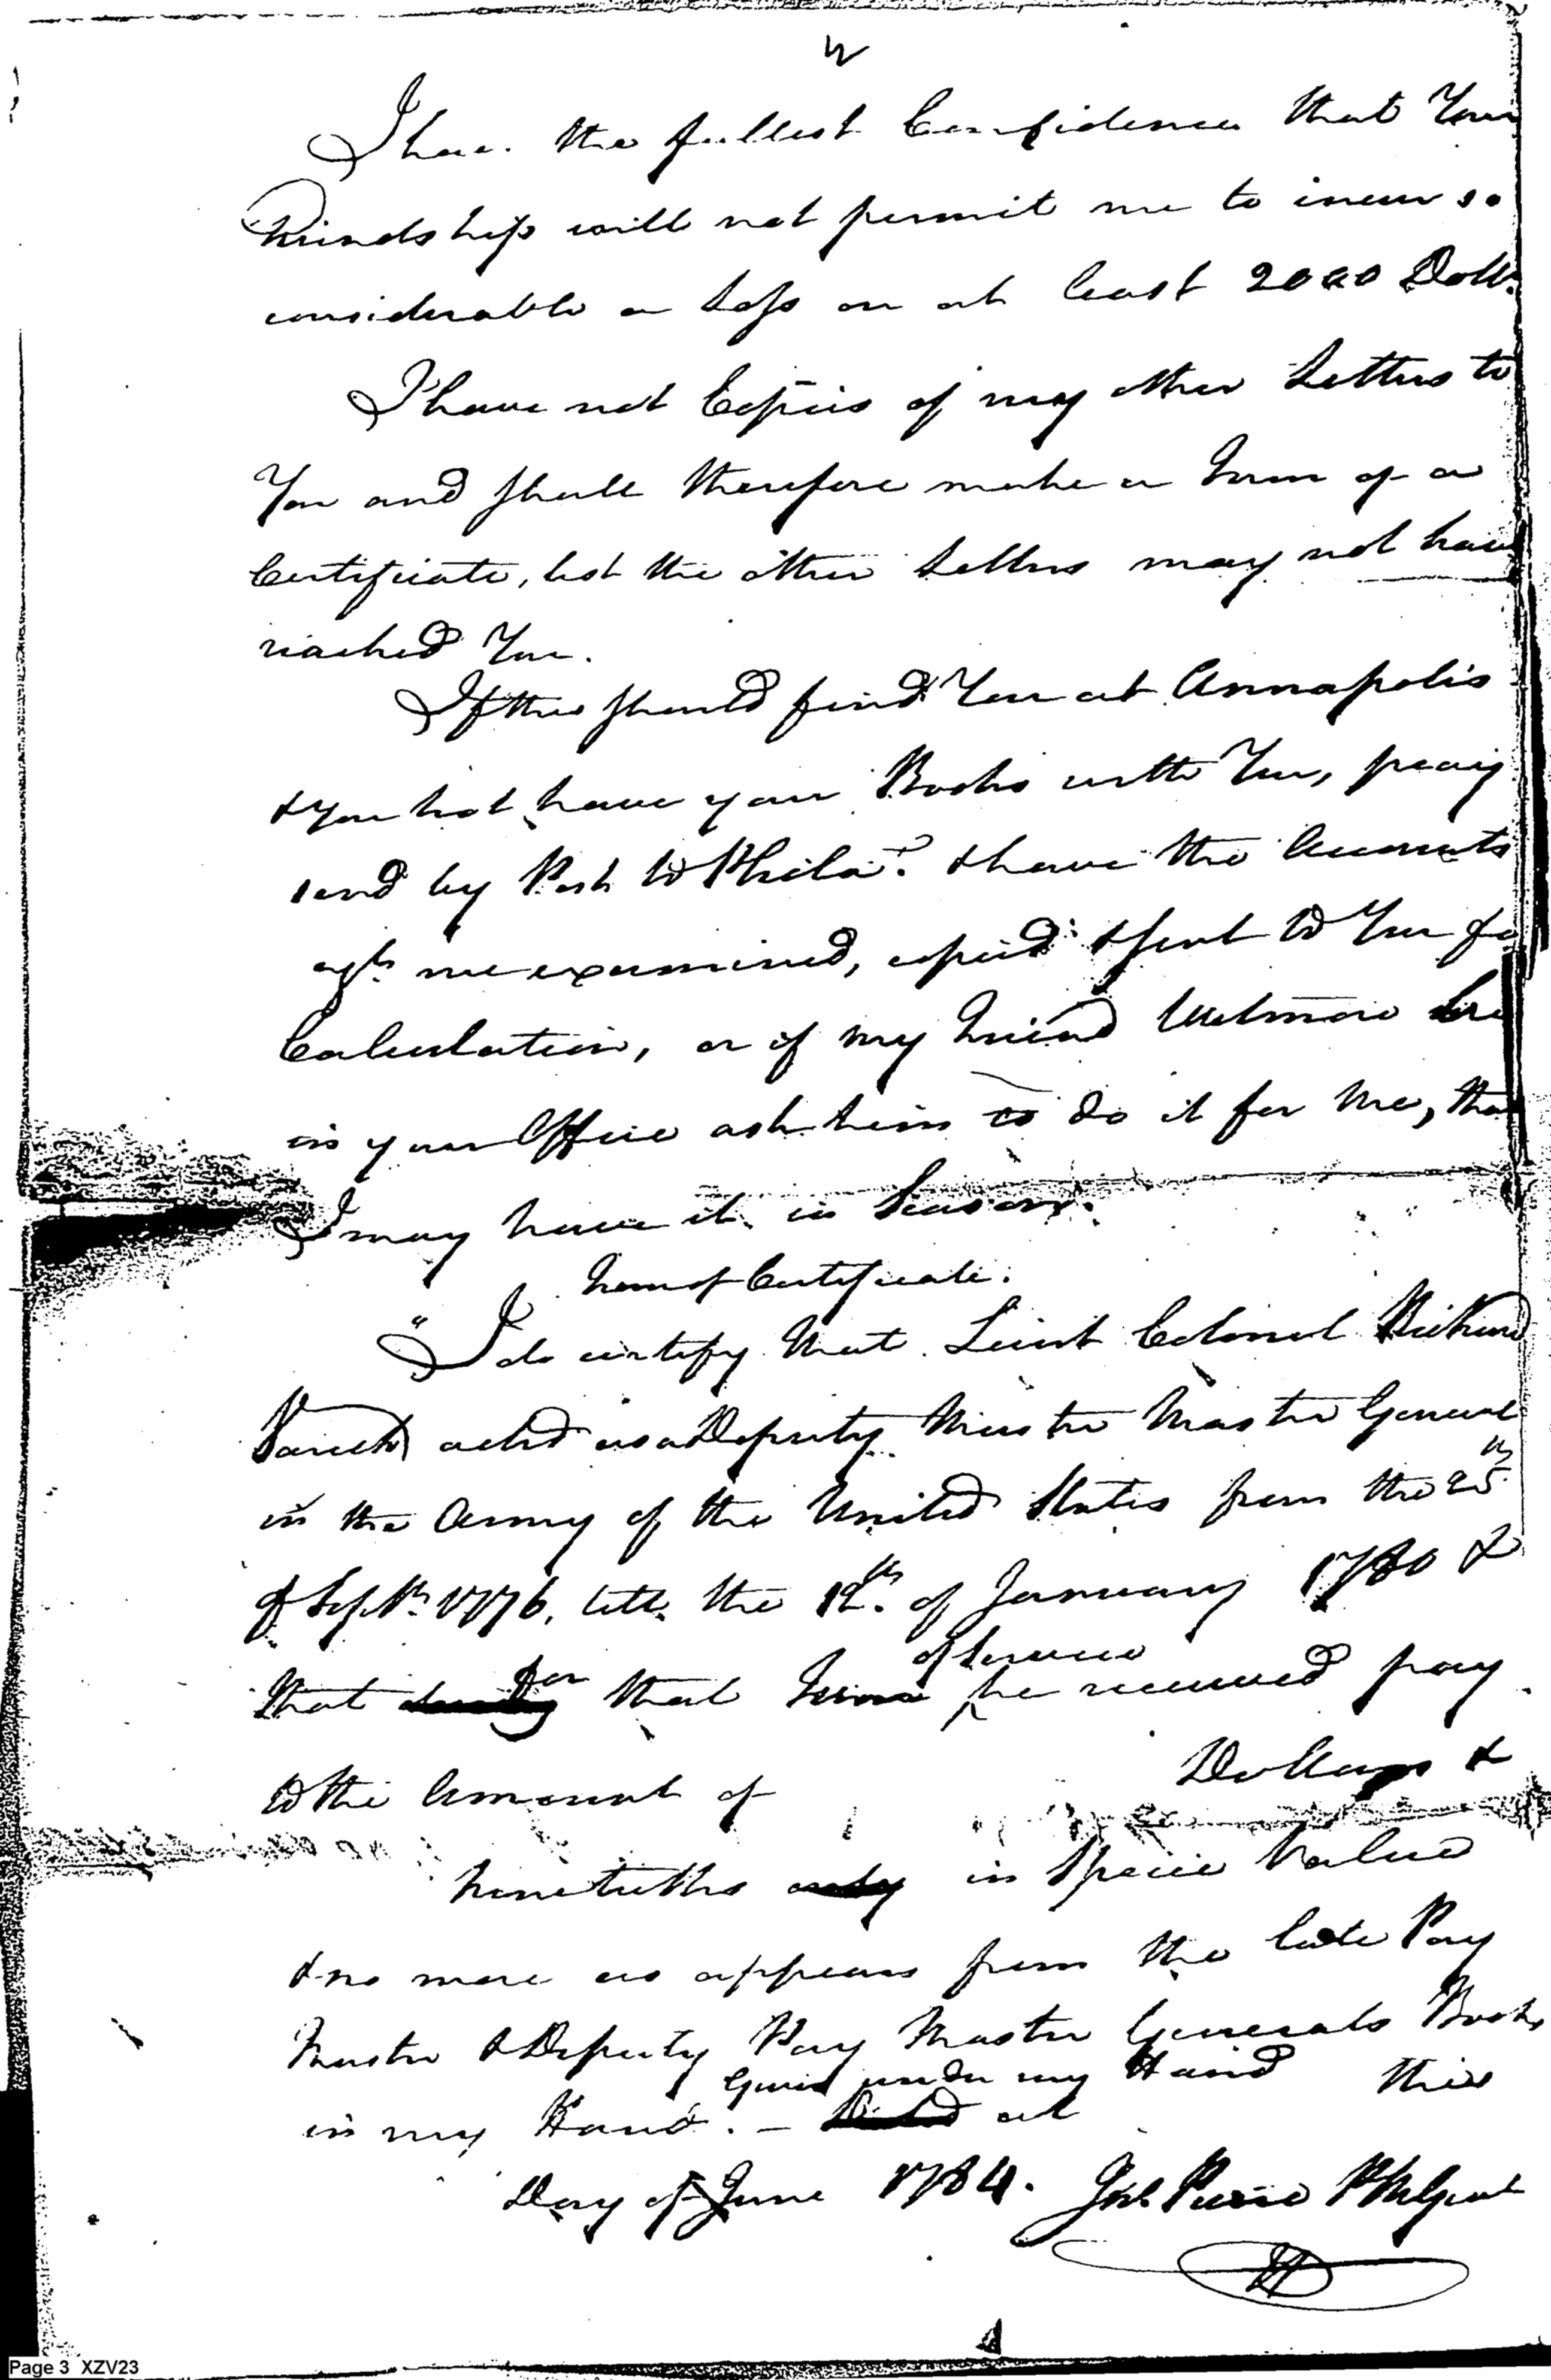 I have the fullest Confidence that Your
Friendship will not permit me to incur so
considerable a Loss on at least 2000 Doll.s
I have not Copies of my other Letters to
You and shall therefore make a Form of a
Certificate, lest the other Letters may not have
reached You.
If this should find You at Annapolis
& You not have your Books with You, pray
send by Post to Phila.a & have the Accounts
ag.t me examined, copied & sent to You for
Calculation, or if my Friend Wetmore be
in your Office ask him to do it for me, that
I may have it in Season.
Form of Certificate.
"I do certify that Lieut Colonel Richard
Varick acted as a Deputy Muster Master General
in the Army of the United States from the 25th
of Sept.r 1776, till the 12.th of January 1780 &
of Service
that for that Term he received pay
to the Amount of Dollars &
ninetieths only in Specie Value
& no more as appears from the late Pay
Master & Deputy Pay Master Generals Books
Given under my Hand this
in my Hand. — Dated at
Day of June 1784. Jno. Pierce P M Genl
Page 3 XZV23